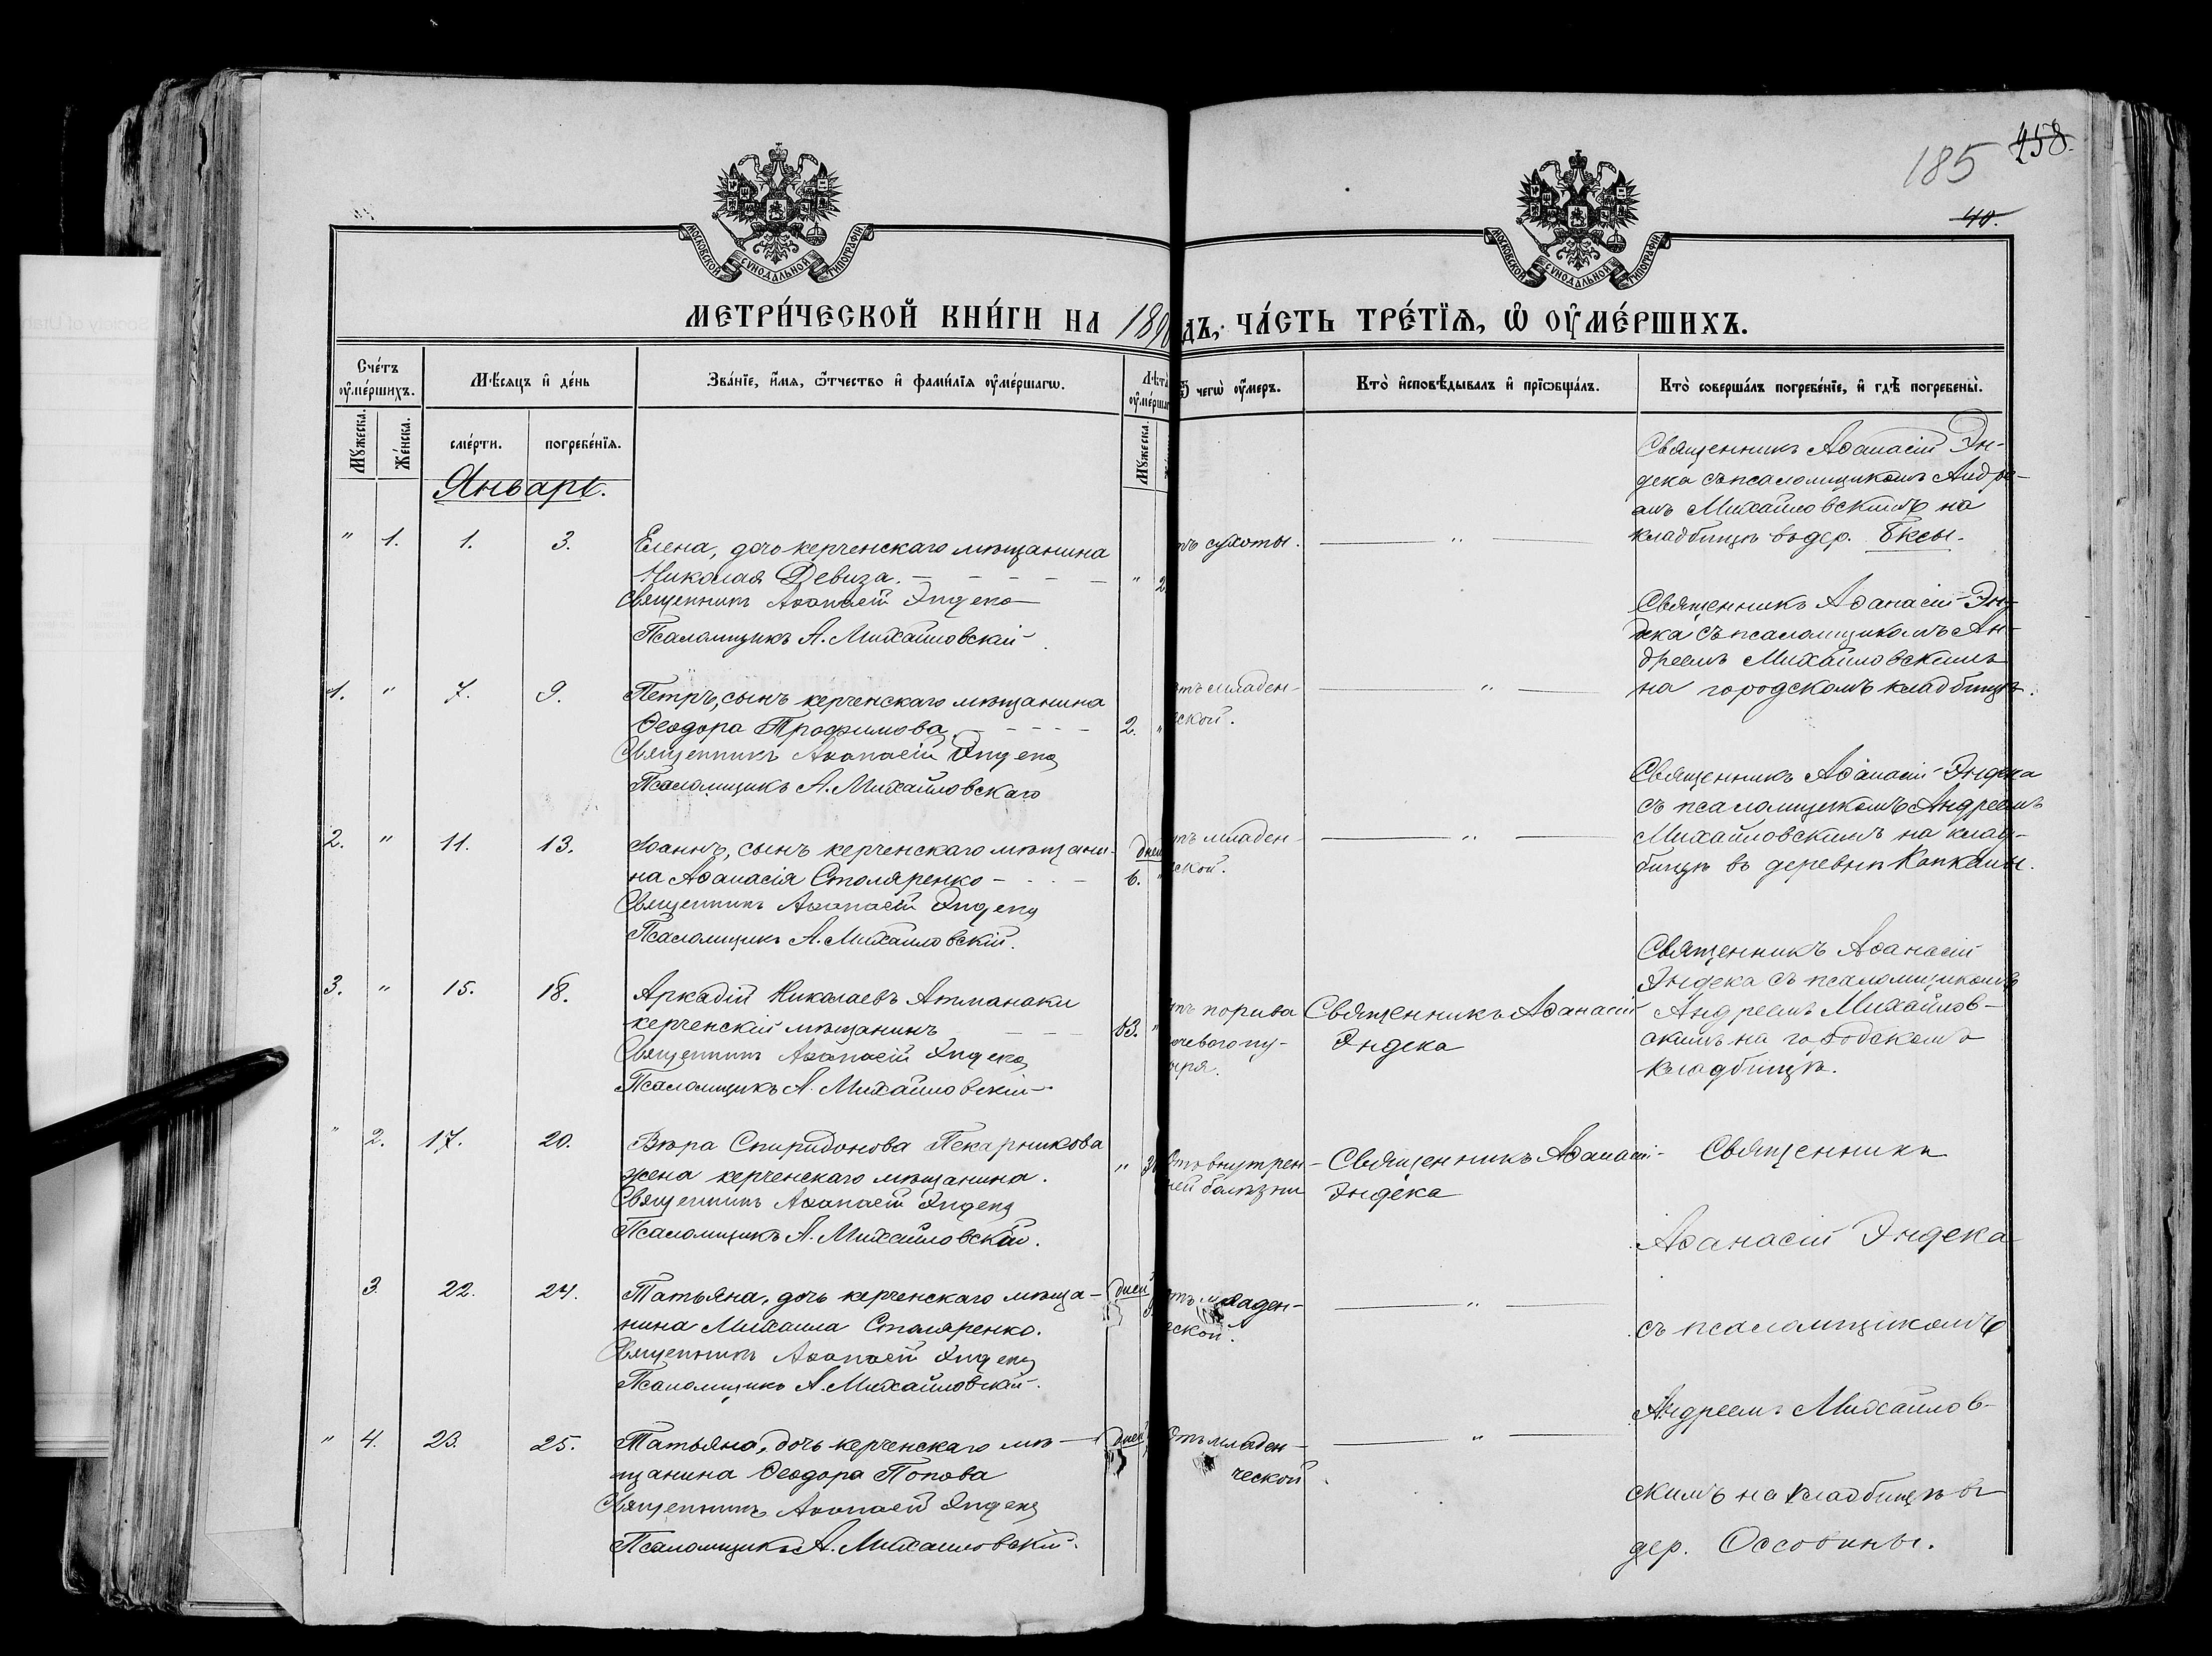 185 458.
40.
МОСКОВСКОЙ СУНОДАЛЬНОЙ ТИПОГРАФІИ
МОСКОВСКОЙ СУНОДАЛЬНОЙ ТИПОГРАФІИ
МЕТРИ́ЧЕСКОЙ КНИ́ГИ НА 189
ДЪ, ЧА́СТЬ ТРЕ́ТЇѦ, Ѡ҆ ОУ҆МЕ́РШИХЪ.
Сче́тъ оу҆ме́ршихъ.
Мꙋ́жеска.
Же́нска.
Мѣ́сяцъ и҆ де́нь
сме́рти.
погребе́нїѧ.
Зва́нїе, и҆́мѧ, ѻ҆́тчество и҆ фами́лїѧ оу҆ме́ршагѡ.
Лѣта
оу҆ме́рша
Мꙋ́жеска.
чегѡ̀ оу҆́меръ.
Кто̀ и҆сповѣ́дывалъ и҆ прїѡбща́лъ.
Кто̀ соверша́лъ погребе́нїе, и҆ гдѣ̀ погребены̀.
Январь.
" 1. 1. 3.
Елена, дочь керченскаго мѣщанина
Николая Девиза.
" 2
Священникъ Аѳанасій Эндека
Псаломщикъ А. Михайловскій
тъ сухоты.
"
Священникъ Аѳанасій Эн-
дека съ псаломщикомъ Андре-
емъ Михайловскимъ на
кладбищѣ въ дер. Бксы.
1. " 7. 9.
Петръ, сынъ керченскаго мѣщанина
Ѳеодора Трофимова
2. "
Священникъ Аѳанасій Эндека
Псаломщикъ А. Михайловскаго
отъ младен-
еской.
"
Священникъ Аѳанасій Эн-
дека съ псаломщикомъ Ан-
дреемъ Михайловскимъ
на городскомъ кладбищѣ.
2. " 11. 13.
Іоаннъ, сынъ керченскаго мѣщани-
на Аѳанасія Столяренко
дней
6.
Священникъ Аѳанасій Эндека
Псаломщикъ А. Михайловскій.
тъ младен-
ской.
"
Священникъ Аѳанасій Эндека
съ псаломщикомъ Андреемъ
Михайловскимъ на клад-
бищѣ въ деревнѣ Капканы.
3. " 15. 18.
Аркадій Николаевъ Атманаки
керченскій мѣщанинъ
83. "
Священникъ Аѳанасій Эндека
Псаломщикъ А. Михайловскій
тъ порива
очеваго пу-
ыря.
Священникъ Аѳанасій
Эндека
Священникъ Аѳанасій
Эндека съ псаломщикомъ
Андреемъ Михайлов-
скимъ на городскомъ
кладбищѣ.
" 2. 17. 20.
Вѣра Спиридонова Пекарникова
жена керченскаго мѣщанина.
" 3
Священникъ Аѳанасій Эндека
Псаломщикъ А. Михайловскій.
Отъ внутрен-
ней болѣзни
Священникъ Аѳанасій
Эндека
3. 22. 24.
Татьяна, дочь керченскаго мѣща-
нина Михаила Столяренко.
дней
Священникъ Аѳанасій Эндека
Псаломщикъ А. Михайловскій.
тъ младен-
еской.
"
" 4. 23. 25.
Татьяна, дочь керченскаго мѣ-
щанина Ѳеодора Попова
дней
Священникъ Аѳанасій Эндека
Псаломщикъ А. Михайловскій.
Отъ младен-
ческой
"
Священникъ
Аѳанасій Эндека
съ псаломщикомъ
Андреемъ Михайлов-
скимъ на кладбищѣ въ
дер. Оссовины.